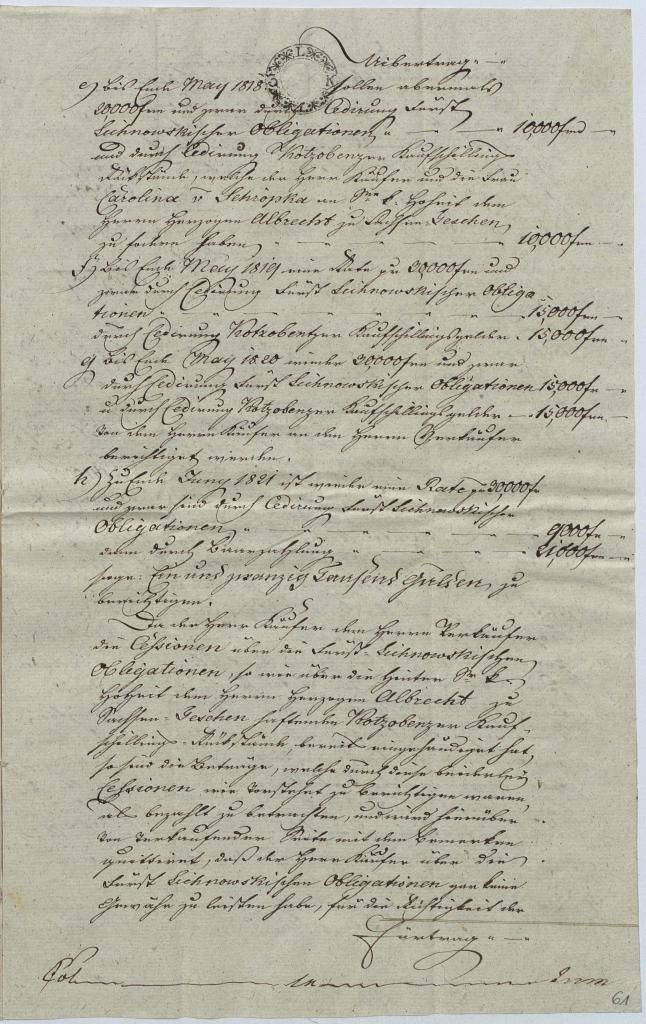 Uibertrag
e) bis Ende May 1818 sollen abermals
20000 fm und zwar durch Cedirung Fürst
Lichnowskischer Obligationen " — " — " 10,000 fm
und durch Cedirung Kotzobenzer Kaufschillings
Rückstände, welche der Herr Käufer und die Frau
Carolina v. Schropka an Sre k. Hoheit dem
Herrn Herzogen Albrecht zu Sachsen-Teschen
zu fodern haben " — " — " 10,000 fm
f) bis Ende May 1819 eine Rate pr 30000 fm und
zwar durch Cedirung Fürst Lichnowskischer Obliga
tionen " — " — " 15,000 fm
durch Cedirung Kotzobentzer Kaufschillingsgelder 15,000 fm
g) bis Ende May 1820 wieder 30000 fm und zwar
durch Cedirung Fürst Lichnowskischer Obligationen 15,000 f
u durch Cedirung Kotzobenzer Kaufschillingsgelder 15,000 fm
von dem Herrn Käufer an den Herrn Verkäufer
berichtiget werden.
h) Zu Ende Juny 1821 ist wieder eine Rate zu 30,000 f
und zwar sind durch Cedirung Fürst Lichnowskischer
Obligationen " — " — " 9,000 fr
dann durch Baarzahlung " — " — " 21,000 fm
sage: Ein und zwanzig Tausend Gulden, zu
berichtigen.
Da der Herr Käufer dem Herrn Verkäufer
die Cessionen über die Fürst Lichnowskischen
Obligationen, so wie über die hinter Sr k.
Hoheit dem Herrn Herzogen Albrecht zu
Sachsen-Teschen haftenden Kotzobenzer Kauf-
schillings-Rückstände, bereits eingehändiget hat,
so sind die Beträge, welche durch diese beiderley
Cessionen wie vorsteht zu berichtigen waren,
als bezahlt zu betrachten, und wird hierüber
von verkaufender Seite mit dem Bemerken
quittiret, daß der Herr Käufer über die
Fürst Lichnowskischen Obligationen gar keine
Gewähr zu leisten habe, für die Richtigkeit der
Fürtrag
61